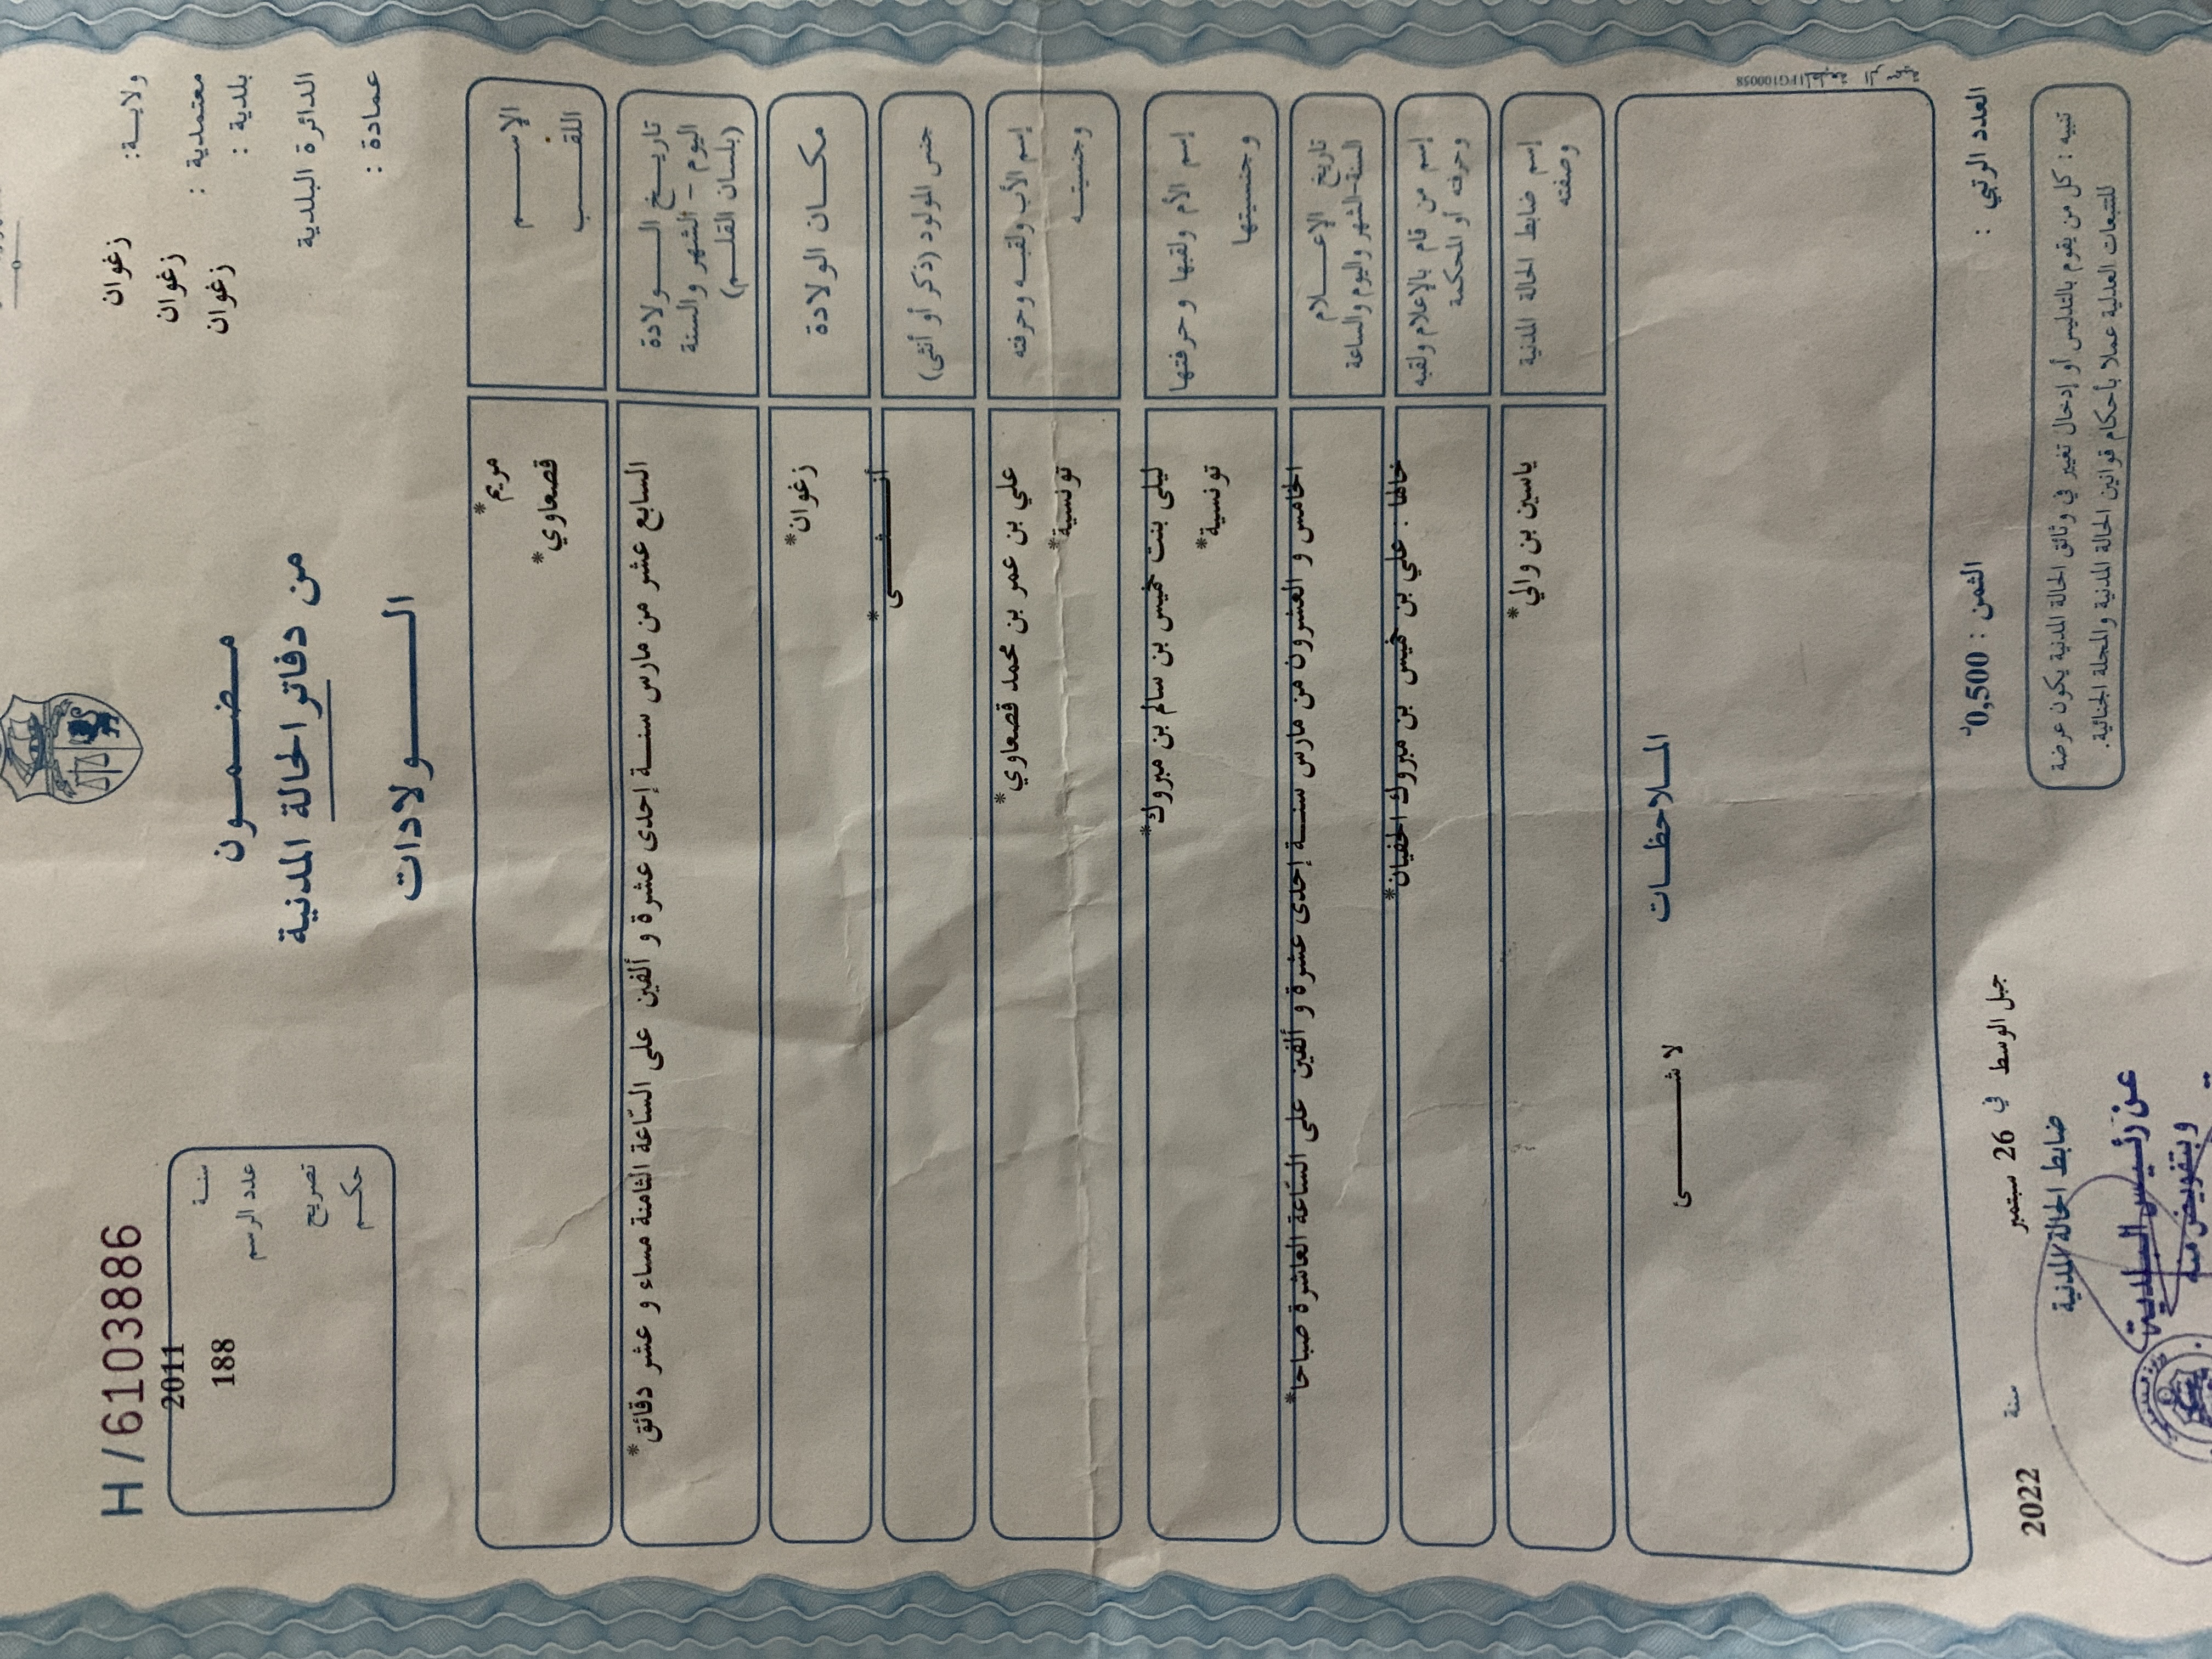 ولايـــة: زغوان
معتمدية : زغوان
بلدية : زغوان
الدائرة البلدية
عمادة :
مـــضـــمـــون
من دفاتر الحالة المدنية
الــــــولادات
H/6103886
سنـــة 2011
عدد الرسم 188
تصريح
حكــم
الإســـــم مريم*
اللقـــــب قصعاوي*
تاريـــخ الـــــولادة السابع عشر من مارس سنـــة إحدى عشرة و ألفين على السّاعة الثامنة مساء و عشر دقائق*
اليوم – الشهر والسنة
(بلسان القلـــم)
مكـــان الولادة زغوان*
جنس المولود (ذكر أو أنثى) أنـــــثـــــى*
إسم الأب ولقبـــه وحرفته علي بن عمر بن محمد قصعاوي*
وجنسيتـــه تونسية*
إسم الأم ولقبها وحرفتها ليلى بنت خميس بن سالم بن مبروك*
وجنسيتها تونسية*
تاريخ الإعـــــلام الخامس و العشرون من مارس سنـــة إحدى عشرة و ألفين على السّاعة العاشرة صباحا*
السنة-الشهر واليوم والساعة
إسم من قام بالإعلام ولقبه خالها : علي بن خميس بن مبروك الحفيان*
وحرفته أو المحكمة
إسم ضابط الحالة المدنية ياسين بن والي*
وصفته
المـــلاحظـــات
لا شـــــــــئ
FG100058
العدد الرتبي :
الثمن : 0,500د
جبل الوسط في 26 سبتمبر سنة 2022
ضابط الحالة المدنية
تنبيه : كل من يقوم بالتدليس أو إدخال تغيير في وثائق الحالة المدنية يكون عرضة
للتتبعات العدلية عملا بأحكام قوانين الحالة المدنية والمجلة الجنائية.
عن رئيس البلدية
وبتفويض منه